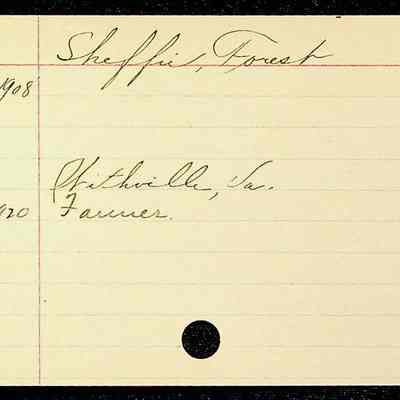 Sheffie, Forest
1908
Withville, Va.
1920 Farmer.